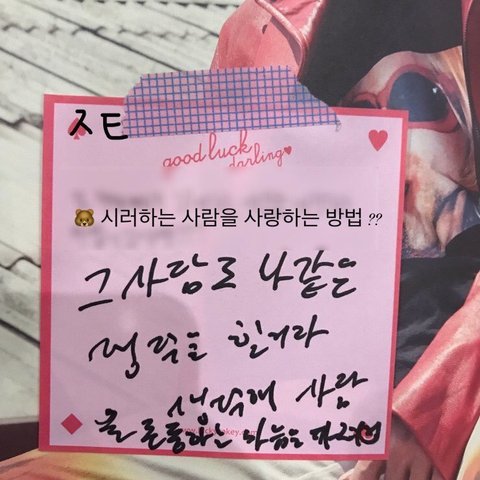 good luck
darling
🐻 시러하는 사람을 사랑하는 방법 ??
그 사람도 나같은
생각을 할거라
생각해 사람
을 존중하는 마음을